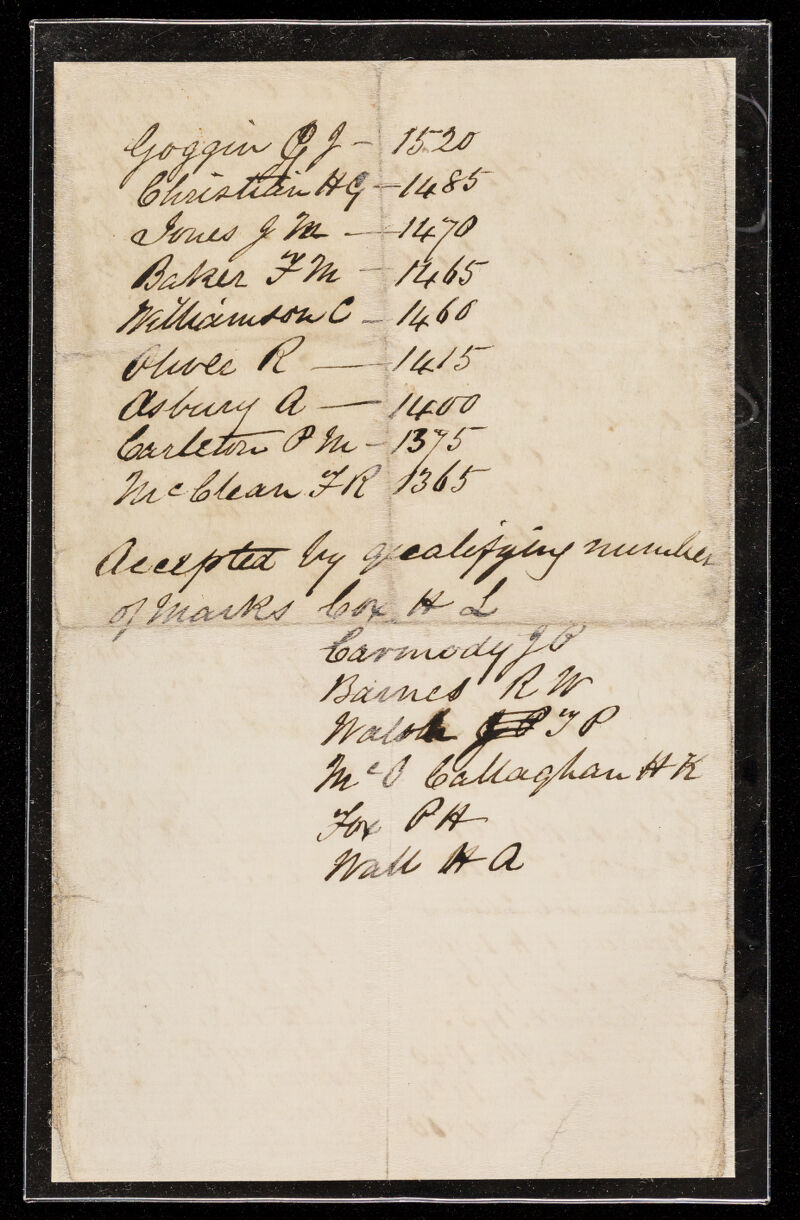 Goggin G J - 1520
Christian H G - 1485
Jones J M - 1470
Baker F M - 1465
Williamson C - 1460
Oliver R - 1415
Asbury A - 1400
Carleton P M - 1375
McClean F R 1365
Accepted by qualifying number
of marks Cox H L
Carmody J P
Barnes R W
Walsh T P
McO Callaghan H K
Fox P H
Wall H A